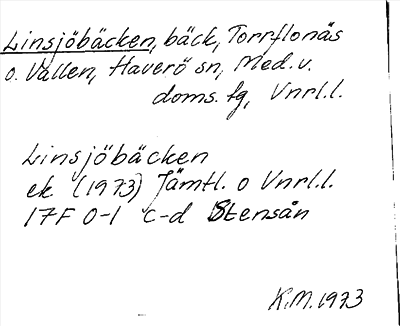 Linsjöbäcken, bäck, Torrflonäs
o. Vallen, Haverö sn, Med. v.
doms. fg, Vnrl.l.
Linsjöbäcken
ek (1973) Jämtl. o Vnrl.l.
17F 0-1 c-d Stensån
K.M. 1973